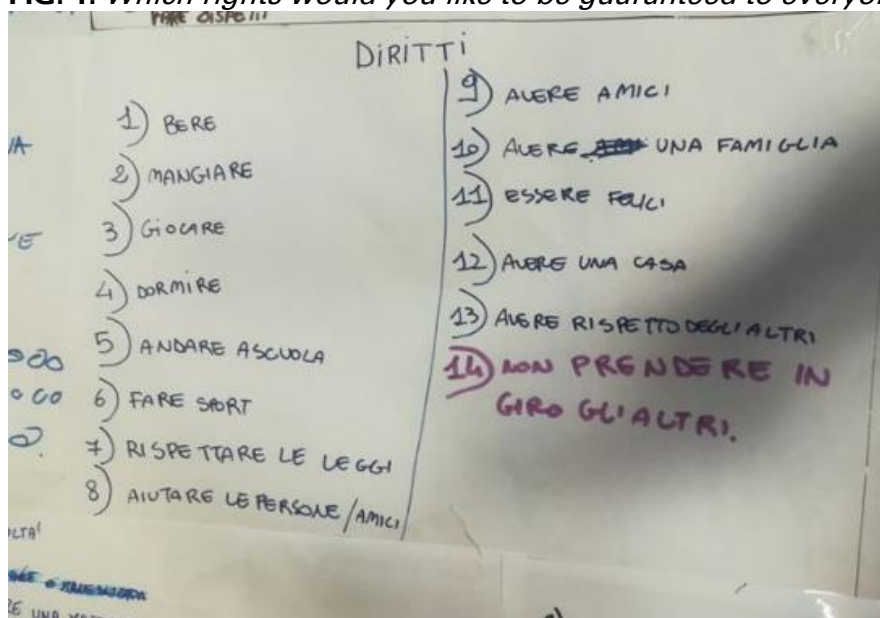 Which rights would you like to be guaranteed to everyo
FARE DISPETTI
DIRITTI
1) BERE
2) MANGIARE
3) GIOCARE
4) DORMIRE
5) ANDARE A SCUOLA
6) FARE SPORT
7) RISPETTARE LE LEGGI
8) AIUTARE LE PERSONE/AMICI
9) AVERE AMICI
10) AVERE UNA FAMIGLIA
11) ESSERE FELICI
12) AVERE UNA CASA
13) AVERE RISPETTO DEGLI ALTRI
14) NON PRENDERE IN
GIRO GLI ALTRI.